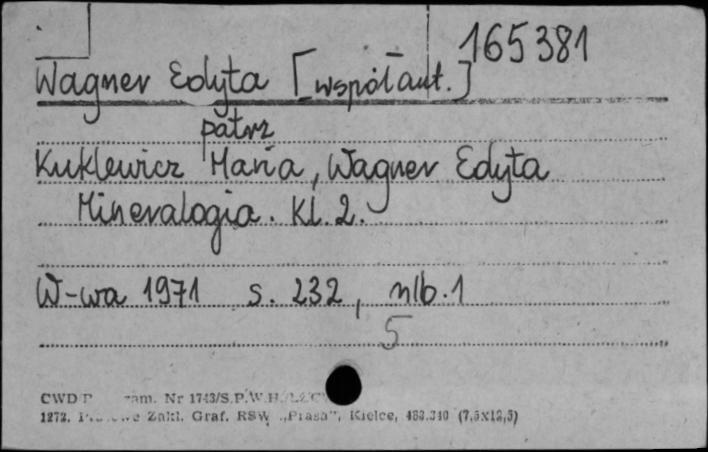 165381
Wagner Edyta [współaut.]
patrz
Kuklewicz Maria, Wagner Edyta
Mineralogia. Kl. 2.
W-wa 1971 s. 232, nlb. 1
5
CWD zam. Nr 1743/S.P.W.H.
1272. Zakł. Graf. RSW „Prasa”, Kielce, 483.310 (7,5x12,5)